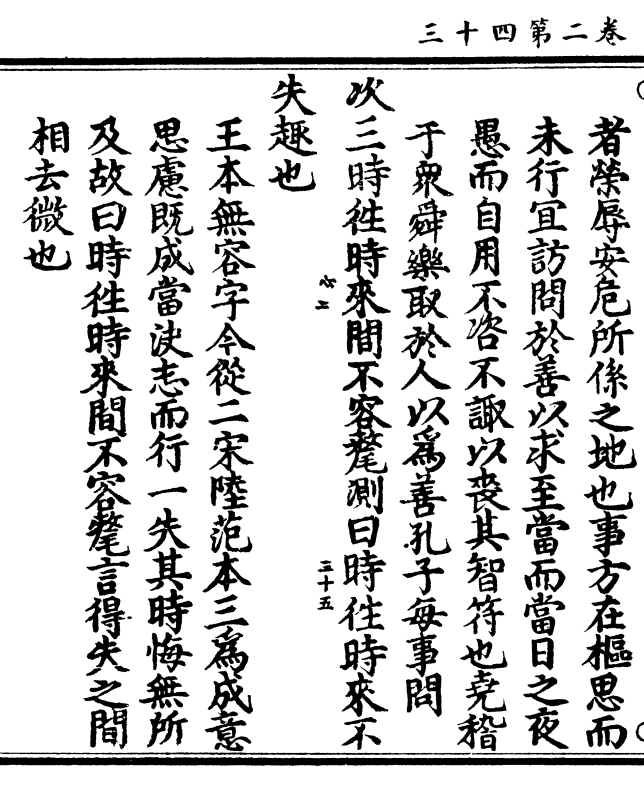 卷二第四十三
者榮辱安危所係之地也事方在樞思而
未行宜訪問於善以求至當而當日之夜
愚而自用不咨不諏以喪其智符也堯稽
于衆舜樂取於人以爲善孔子每事問
次三時往時來間不容氂測曰時往時來不
心二
三十五
失趣也
王本無容字今從二宋陸范本三爲成意
思慮既成當決志而行一失其時悔無所
及故曰時往時來間不容氂言得失之間
相去微也